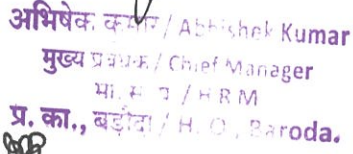 अभिषेक कुमार / Abhishek Kumar
मुख्य प्रबंधक / Chief Manager
मा. सं. प्र / HRM
प्र. का., बड़ौदा / H. O., Baroda.